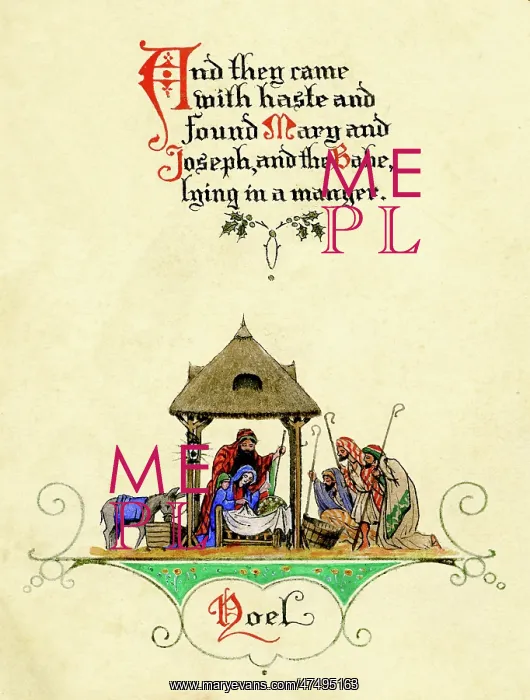 And they came
with haste and
found Mary and
Joseph, and the Babe,
lying in a manger.
ME
PL
ME
PL
Noel
www.maryevans.com/47495163